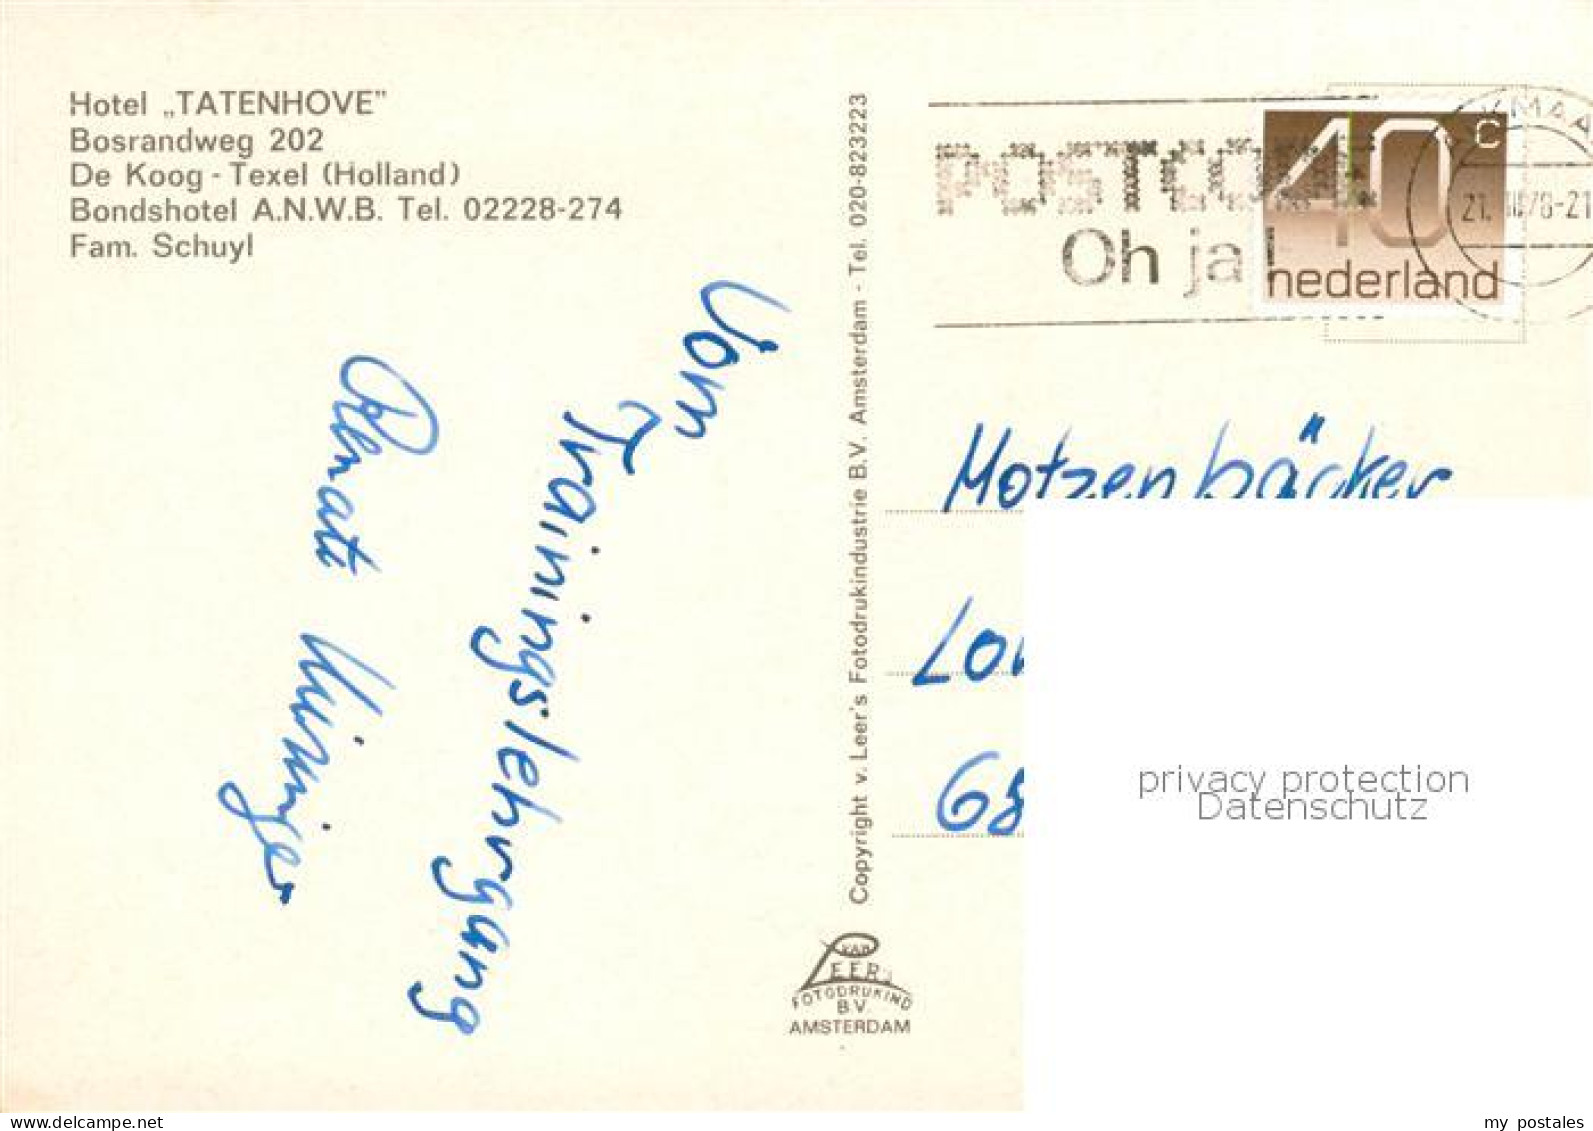 Hotel „TATENHOVE”
Bosrandweg 202
De Koog - Texel (Holland)
Bondshotel A.N.W.B. Tel. 02228-274
Fam. Schuyl
Vom
Trainingslehrgang
Renate
Copyright v. Leer's Fotodrukindustrie B.V. Amsterdam - Tel. 020-823223
VAN
LEER
FOTODRUKIND
B.V.
AMSTERDAM
Oh ja
40 c
nederland
Motzenbäcker
68
privacy protection
Datenschutz
www.delcampe.net
my_postales